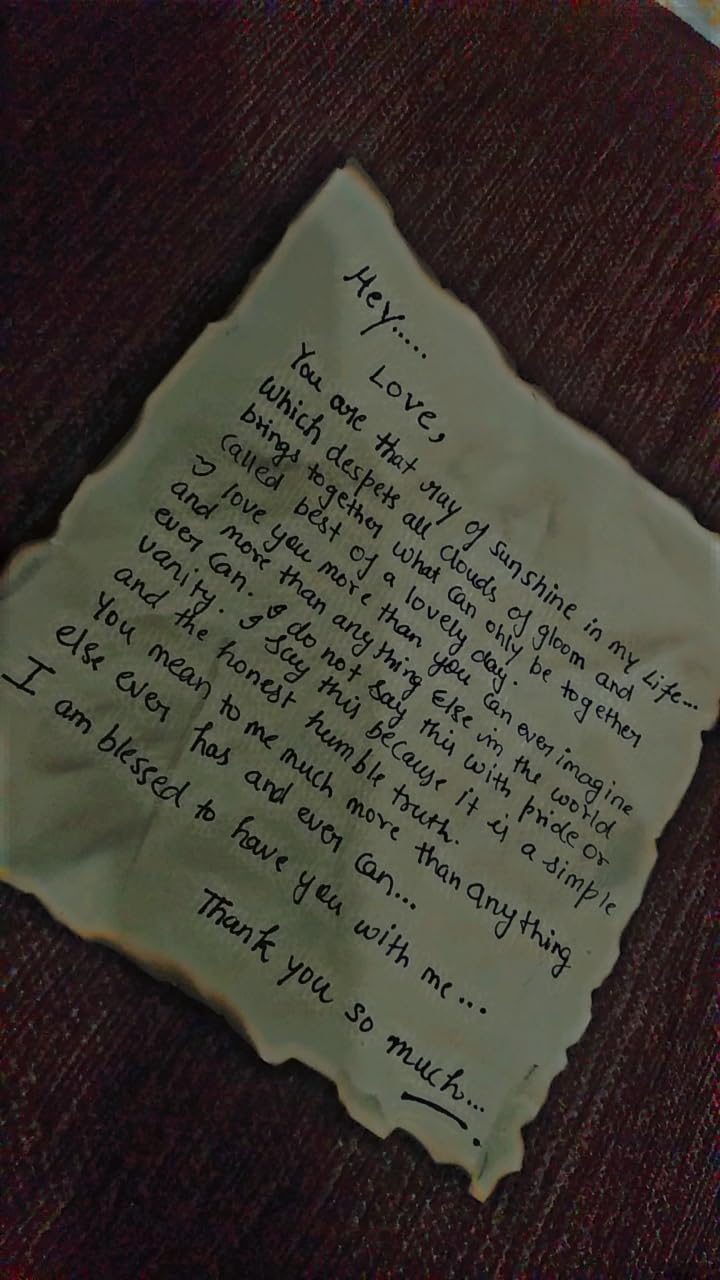 Hey.....
Love,
You are that ray of sunshine in my life...
which despets all clouds of gloom and
brings together what can only be together
called best of a lovely day.
I love you more than you can ever imagine
and more than anything Else in the world
ever can. I do not say this with pride or
vanity. I say this because it is a simple
and the honest humble truth.
You mean to me much more than anything
else ever has and ever can...
I am blessed to have you with me...
Thank you so much...